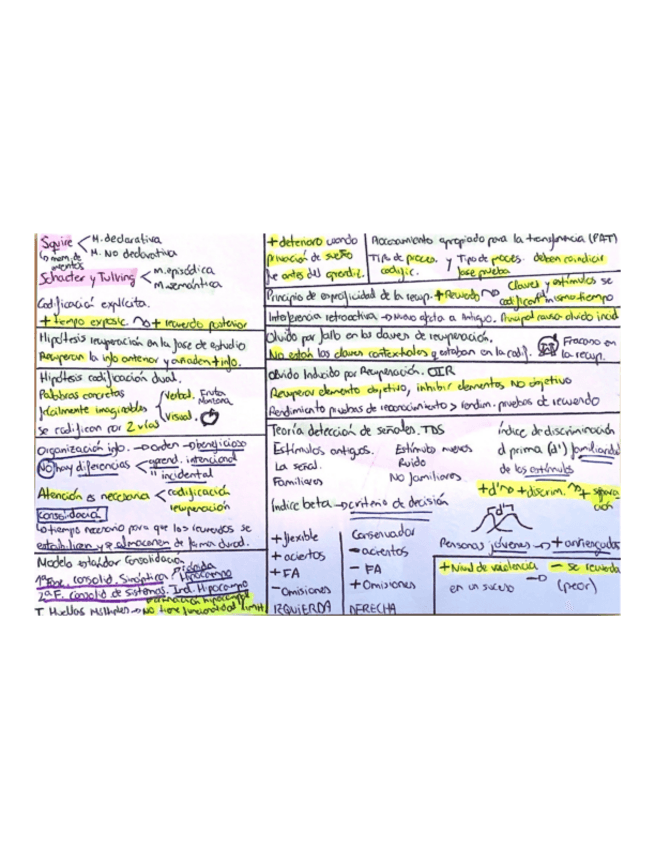 Squire < M. declarativa
M. No declarativa
Schacter y Tulving < m. episódica
m. semántica
Codificación explícita.
+ tiempo exposic. → + recuerdo posterior
Hipótesis recuperación en la fase de estudio
Recuperan la info anterior y añaden + info.
Hipótesis codificación dual.
Palabras concretas
fácilmente imaginables < Verbal. Fruta Manzana
Visual.
se codifican por 2 vías
Organización info. → orden → beneficioso
NO hay diferencias < aprend. intencional
" incidental
Atención es necesaria < codificación
recuperación
Consolidación
↳ tiempo necesario para que los recuerdos se
estabilicen y se almacenen de forma durad.
Modelo estándar Consolidación
1ª Fase. Consolid. Sináptica
Hipocampo
2ª F. Consolid de sistemas. Ind. Hipocampo
T. Huellas Múltiples → No tiene funcionalidad limit.
+ deterioro cuando
privación de sueño
fue antes del aprendiz.
Procesamiento apropiado para la transferencia (PAT)
Tipo de proces. y Tipo de proces. deben coincidir
codific. fase prueba
Principio de especificidad de la recup. + Recuerdo → Claves y estímulos se
codifican mismo tiempo
Interferencia retroactiva → Nuevo afecta a Antiguo. Principal causa olvido incid
Olvido por fallo en las claves de recuperación.
No están las claves contextuales q estaban en la codif. Fracaso en
la recup.
Olvido Inducido por Recuperación. OIR
Recuperar elemento objetivo, inhibir elementos NO objetivo
Rendimiento pruebas de reconocimiento > rendim. pruebas de recuerdo
Teoría detección de señales. TDS
Estímulos antiguos. Estímulo nuevos
La señal. Ruido
Familiares No familiares
índice de discriminación
d prima (d') familiaridad
de los estímulos
+d' → + discrim. → + separa
ción
d'
Índice beta → criterio de decisión
+ flexible
+ aciertos
+ FA
- Omisiones
IZQUIERDA
Conservador
- aciertos
- FA
+ Omisiones
DERECHA
Personas jóvenes → + arriesgados
+ Nivel de violencia → - se recuerda
en un suceso (peor)